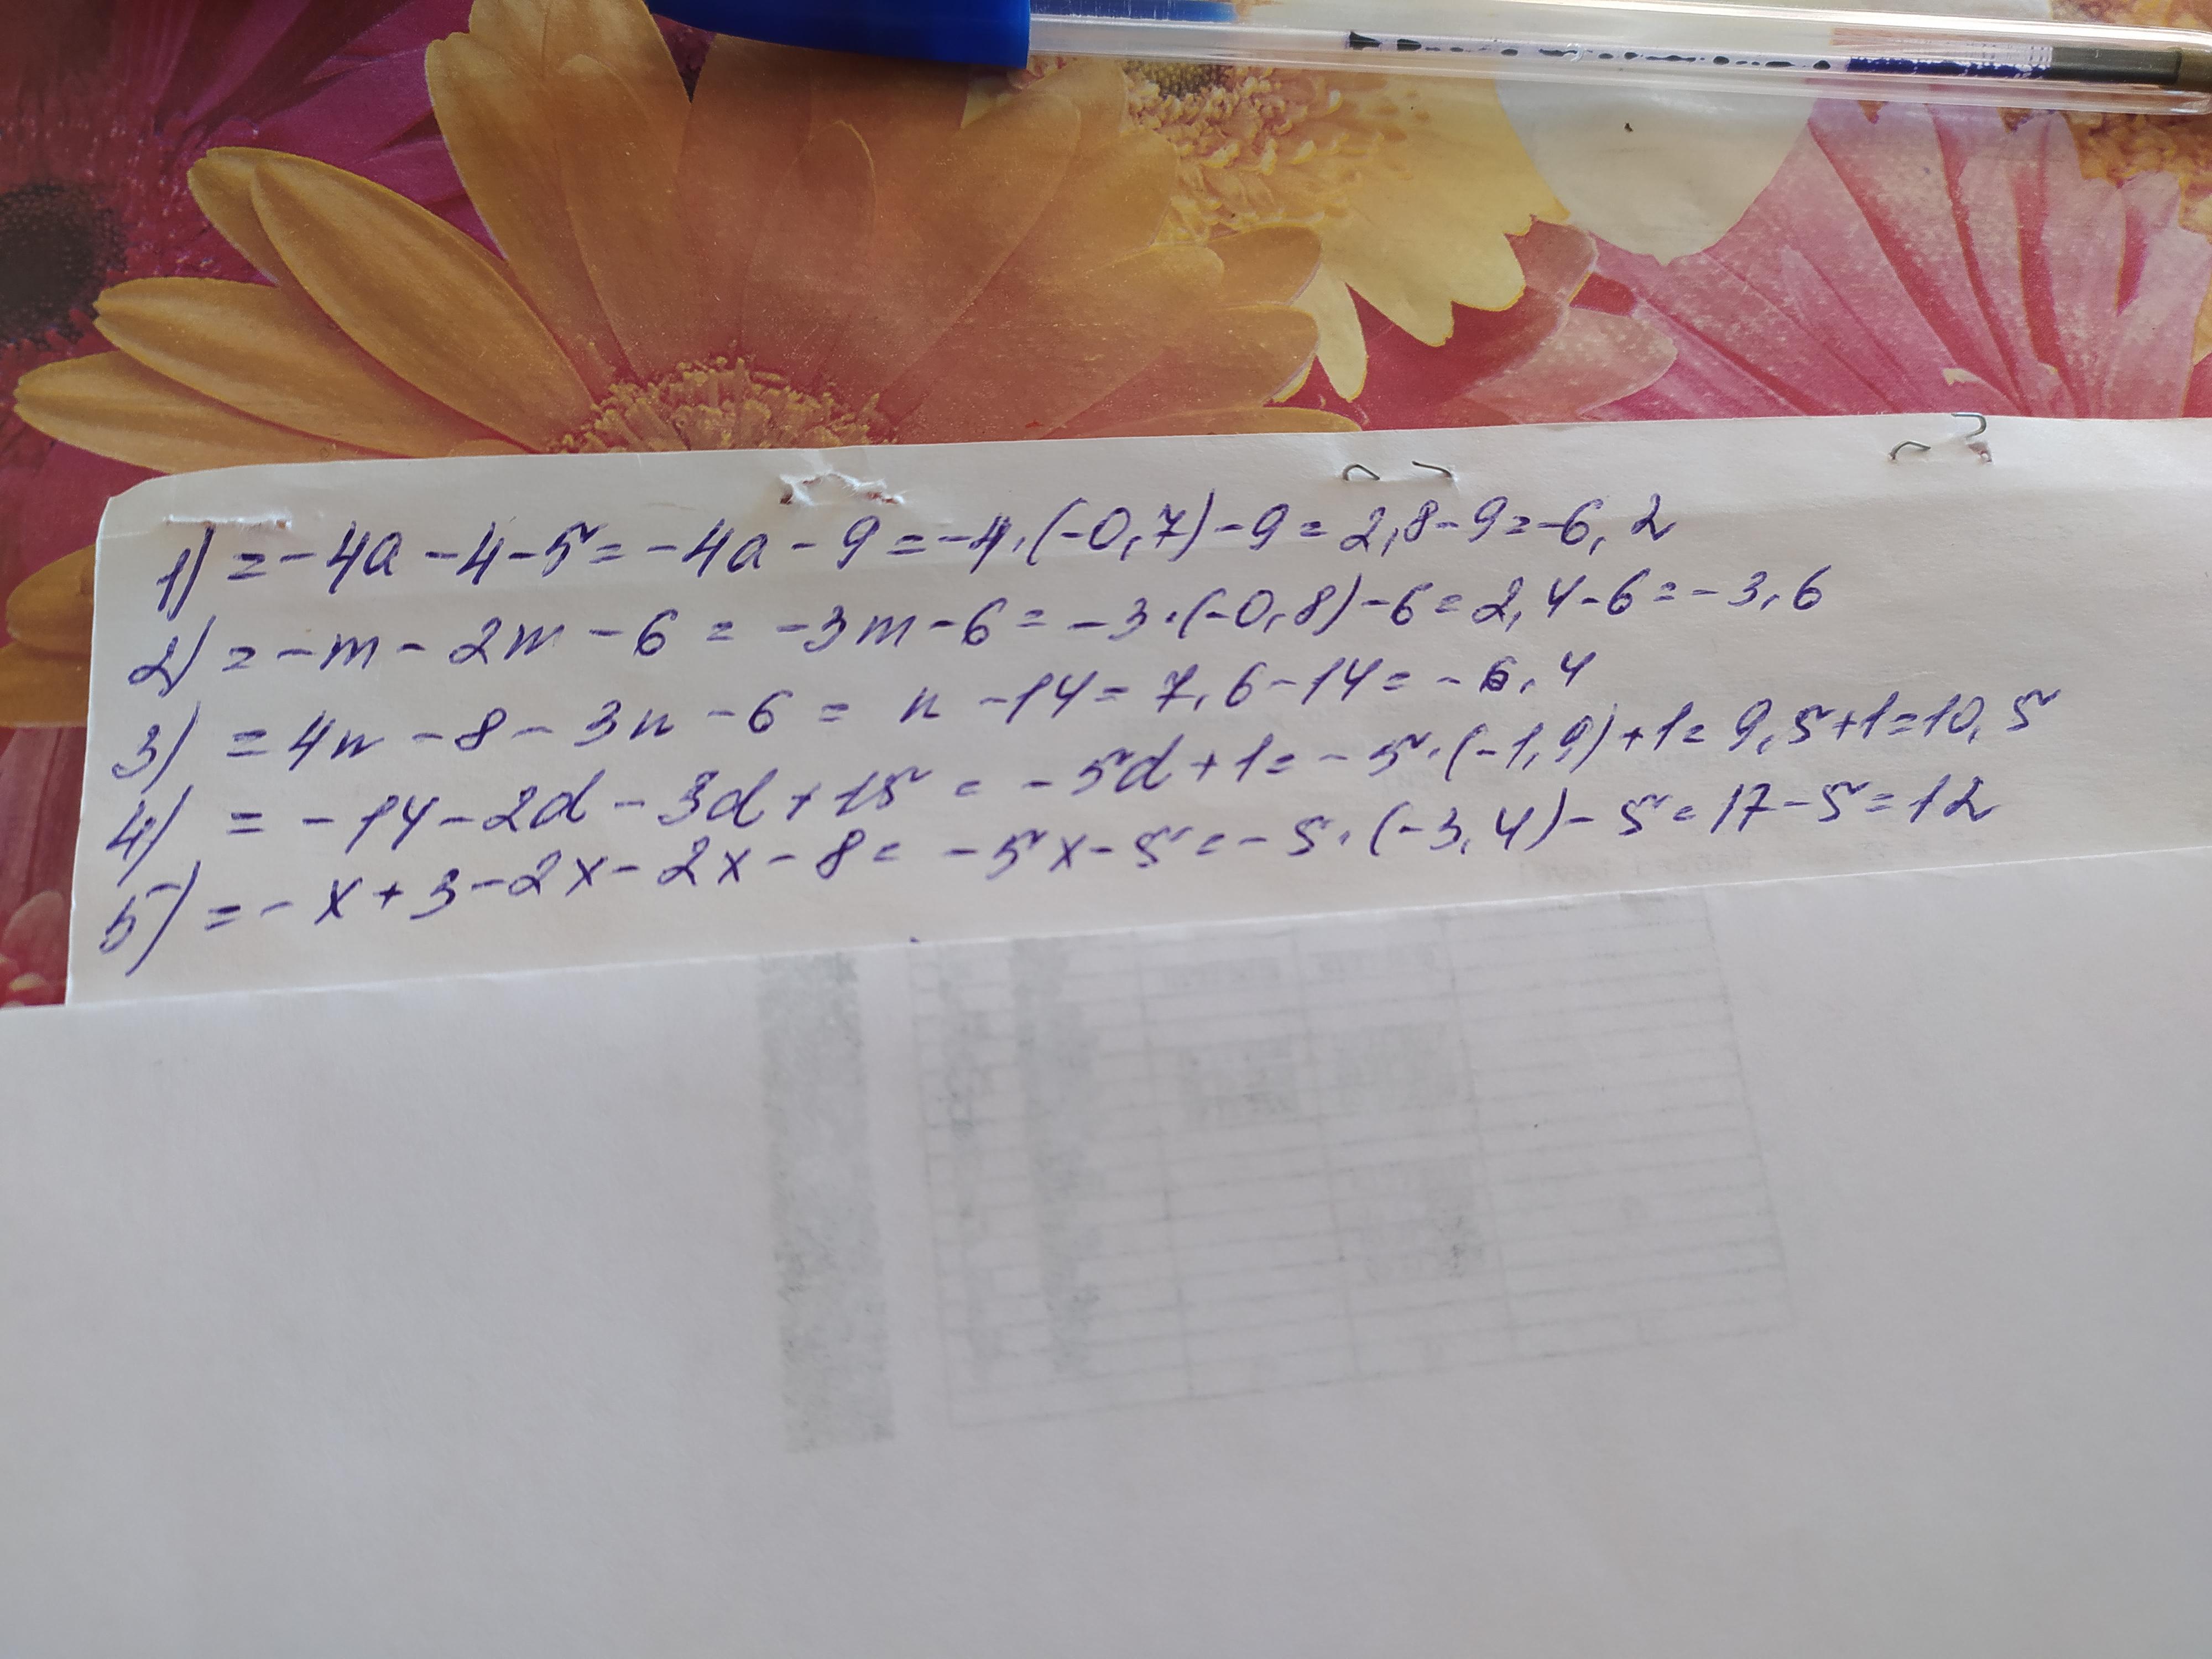 1) = -4a - 4 - 5 = -4a - 9 = -4·(-0,7) - 9 = 2,8 - 9 = -6,2
2) = -m - 2m - 6 = -3m - 6 = -3·(-0,8) - 6 = 2,4 - 6 = -3,6
3) = 4n - 8 - 3n - 6 = n - 14 = 7,6 - 14 = -6,4
4) = -14 - 2d - 3d + 15 = -5d + 1 = -5·(-1,9) + 1 = 9,5 + 1 = 10,5
5) = -x + 3 - 2x - 2x - 8 = -5x - 5 = -5·(-3,4) - 5 = 17 - 5 = 12